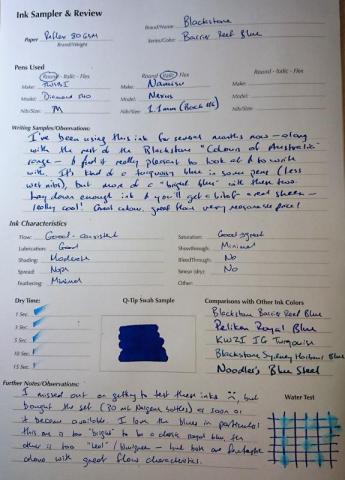 Ink Sampler & Review
Brand/Name: Blackstone
Paper Reflex 80GSM Series/Color: Barrier Reef Blue
Brand/Weight
Pens Used
Round - Italic - Flex Round - Italic - Flex Round - Italic - Flex
Make: TWSBI Make: Namisu Make:
Model: Diamond 580 Model: Nexus Model:
Nib/Size: M Nib/Size: 1.1mm (Bock #6) Nib/Size:
Writing Samples/Observations:
I've been using this ink for several months now - along
with the rest of the Blackstone "Colours of Australia"
range - & find it really pleasant to look at & to work
with. It's kind of a turquoisy blue in some pens (less
wet nibs), but more of a "bright blue" with these two.
Lay down enough ink & you'll get a bit of a red sheen -
really cool! Great colour, great flow, very reasonable price!
Ink Characteristics
Flow: Good - consistent Saturation: Good - great
Lubrication: Good Showthrough: Minimal
Shading: Moderate BleedThrough: No
Spread: Nope Smear (dry): No
Feathering: Minimal Other:
Dry Time: Q-Tip Swab Sample Comparisons with Other Ink Colors
1 Sec. Blackstone Barrier Reef Blue
3 Sec. Pelikan Royal Blue
5 Sec. KWZI IG Turquoise
10 Sec. Blackstone Sydney Harbour Blue
15 Sec. Noodler's Blue Steel
Further Notes/Observations: Water Test
I missed out on getting to test these inks :(, but
bought the set (30 ml Nalgene bottles) as soon as
it became available. I love the blues in particular
this one is too "bright" to be a classic royal blue, the
other is too "teal" / - but both are fantastic
with great flow characteristics.